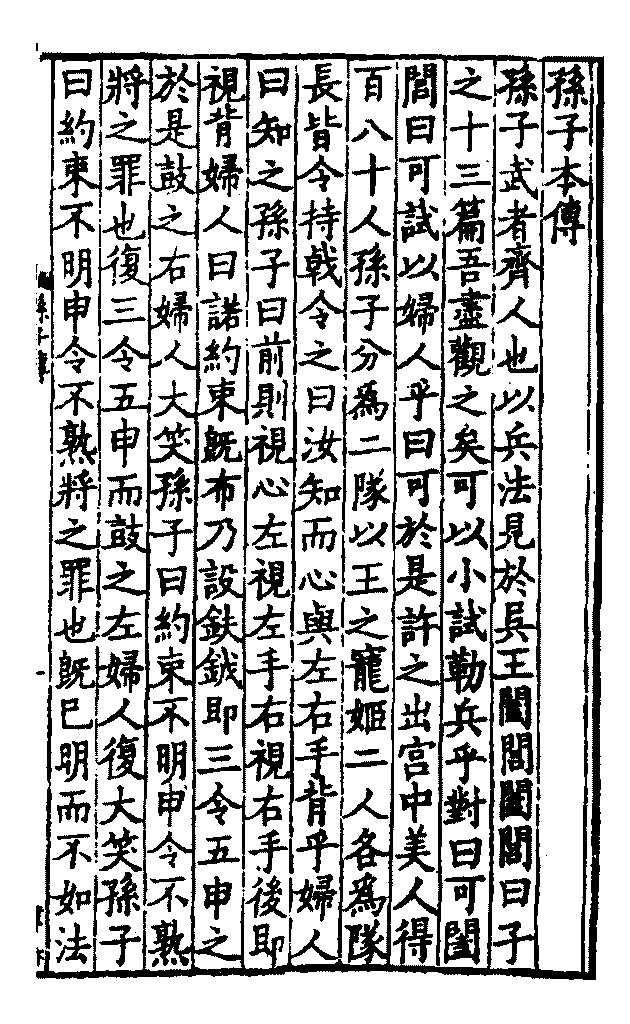 孫子本傳
孫子武者齊人也以兵法見於吳王闔閭闔閭曰子
之十三篇吾盡觀之矣可以小試勒兵乎對曰可闔
閭曰可試以婦人乎曰可於是許之出宮中美人得
百八十人孫子分爲二隊以王之寵姬二人各爲隊
長皆令持戟令之曰汝知而心與左右手背乎婦人
曰知之孫子曰前則視心左視左手右視右手後即
視背婦人曰諾約束旣布乃設鈇鉞即三令五申之
於是鼓之右婦人大笑孫子曰約束不明申令不熟
將之罪也復三令五申而鼓之左婦人復大笑孫子
曰約束不明申令不熟將之罪也旣已明而不如法